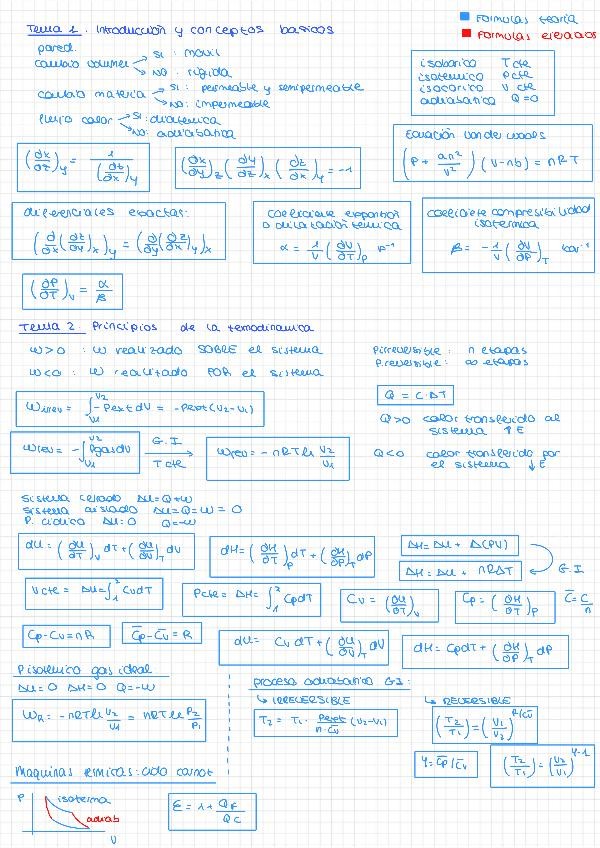 Tema 1. Introducción y conceptos basicos
Formulas teoria
Formulas ejercicios
pared.
cambio volumen → SI: movil
→ NO: rigida
cambio materia → SI: permeable y semipermeable
→ NO: impermeable
flujo calor → SI: diatermica
→ NO: adiabatica
isobarico T cte
isotermico P cte
isocorico V cte
adiabatico Q=0
(∂x/∂z)_y = 1/(∂z/∂x)_y
(∂x/∂y)_z (∂y/∂z)_x (∂z/∂x)_y = -1
Ecuación van der waals
(P + an²/V²)(V-nb) = nRT
diferenciales exactas:
(∂/∂x (∂z/∂y)_x)_y = (∂/∂y (∂z/∂x)_y)_x
coeficiente expansion
o dilatación termica
α = 1/V (∂V/∂T)_P K⁻¹
coeficiente compresibilidad
isotermica
β = -1/V (∂V/∂P)_T bar⁻¹
(∂P/∂T)_V = α/β
Tema 2. Principios de la termodinamica
W>0 : W realizado SOBRE el sistema
W<0 : W realizado POR el sistema
P.irreversible: n etapas
P.reversible: ∞ etapas
Wirrev = ∫_V1^V2 -Pext dV = -Pext(V2-V1)
Q = C·ΔT
Q>0 calor transferido al
sistema ↑E
Q<0 calor transferido por
el sistema ↓E
Wrev = -∫_V1^V2 Pgas dV
G.I
T cte
Wrev = -nRT ln V2/V1
Sistema cerrado ΔU=Q+W
Sistema aislado ΔU=Q=W=0
P. ciclico ΔU=0 Q=-W
dU = (∂U/∂T)_V dT + (∂U/∂V)_T dV
dH = (∂H/∂T)_P dT + (∂H/∂P)_T dP
ΔH = ΔU + Δ(PV)
ΔH = ΔU + nRΔT
G.I
V cte = ΔU = ∫_1^2 Cv dT
P cte = ΔH = ∫_1^2 Cp dT
Cv = (∂U/∂T)_V
Cp = (∂H/∂T)_P
C̄ = C/n
Cp-Cv = nR
C̄p-C̄v = R
dU = Cv dT + (∂U/∂V)_T dV
dH = Cp dT + (∂H/∂P)_T dP
P isotermico gas ideal
ΔU=0 ΔH=0 Q=-W
W_R = -nRT ln V2/V1 = nRT ln P2/P1
proceso adiabatico G.I:
↳ IRREVERSIBLE
T2 = T1 · Pext/n·C̄v (V2-V1)
↳ REVERSIBLE
(T2/T1) = (V1/V2)^R/C̄v
γ = C̄p/C̄v
(T2/T1) = (V2/V1)^γ-1
Maquinas termicas: ciclo carnot
P
isoterma
adiab
V
ε = 1 + Q_F/Q_C